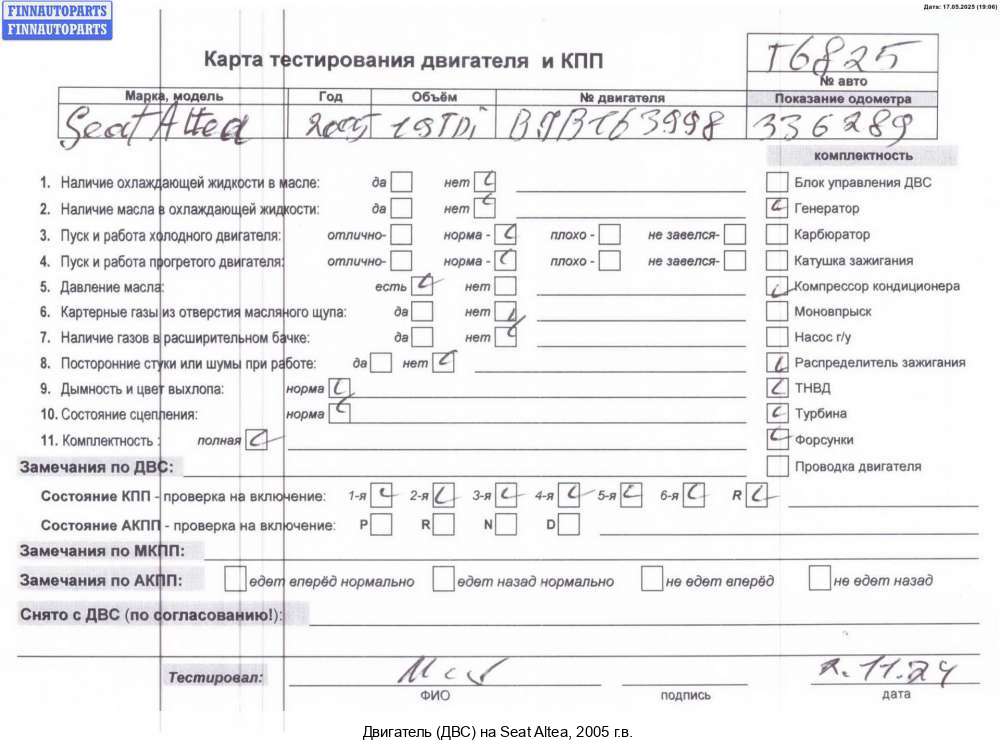 FINNAUTOPARTS
FINNAUTOPARTS
Дата: 17.05.2025 (19:06)
Карта тестирования двигателя и КПП
T6825
№ авто
Марка, модель Год Объём № двигателя Показание одометра
Seat Altea 2005 1.9 TDi BJB163998 336289
комплектность
1. Наличие охлаждающей жидкости в масле: да нет Блок управления ДВС
2. Наличие масла в охлаждающей жидкости: да нет Генератор
3. Пуск и работа холодного двигателя: отлично- норма - плохо - не завелся- Карбюратор
4. Пуск и работа прогретого двигателя: отлично- норма - плохо - не завелся- Катушка зажигания
5. Давление масла: есть нет Компрессор кондиционера
6. Картерные газы из отверстия масляного щупа: да нет Моновпрыск
7. Наличие газов в расширительном бачке: да нет Насос г/у
8. Посторонние стуки или шумы при работе: да нет Распределитель зажигания
9. Дымность и цвет выхлопа: норма ТНВД
10. Состояние сцепления: норма Турбина
11. Комплектность : полная Форсунки
Замечания по ДВС: Проводка двигателя
Состояние КПП - проверка на включение: 1-я 2-я 3-я 4-я 5-я 6-я R
Состояние АКПП - проверка на включение: P R N D
Замечания по МКПП:
Замечания по АКПП: едет вперёд нормально едет назад нормально не едет вперёд не едет назад
Снято с ДВС (по согласованию!):
Тестировал: .11.24
ФИО подпись дата
Двигатель (ДВС) на Seat Altea, 2005 г.в.